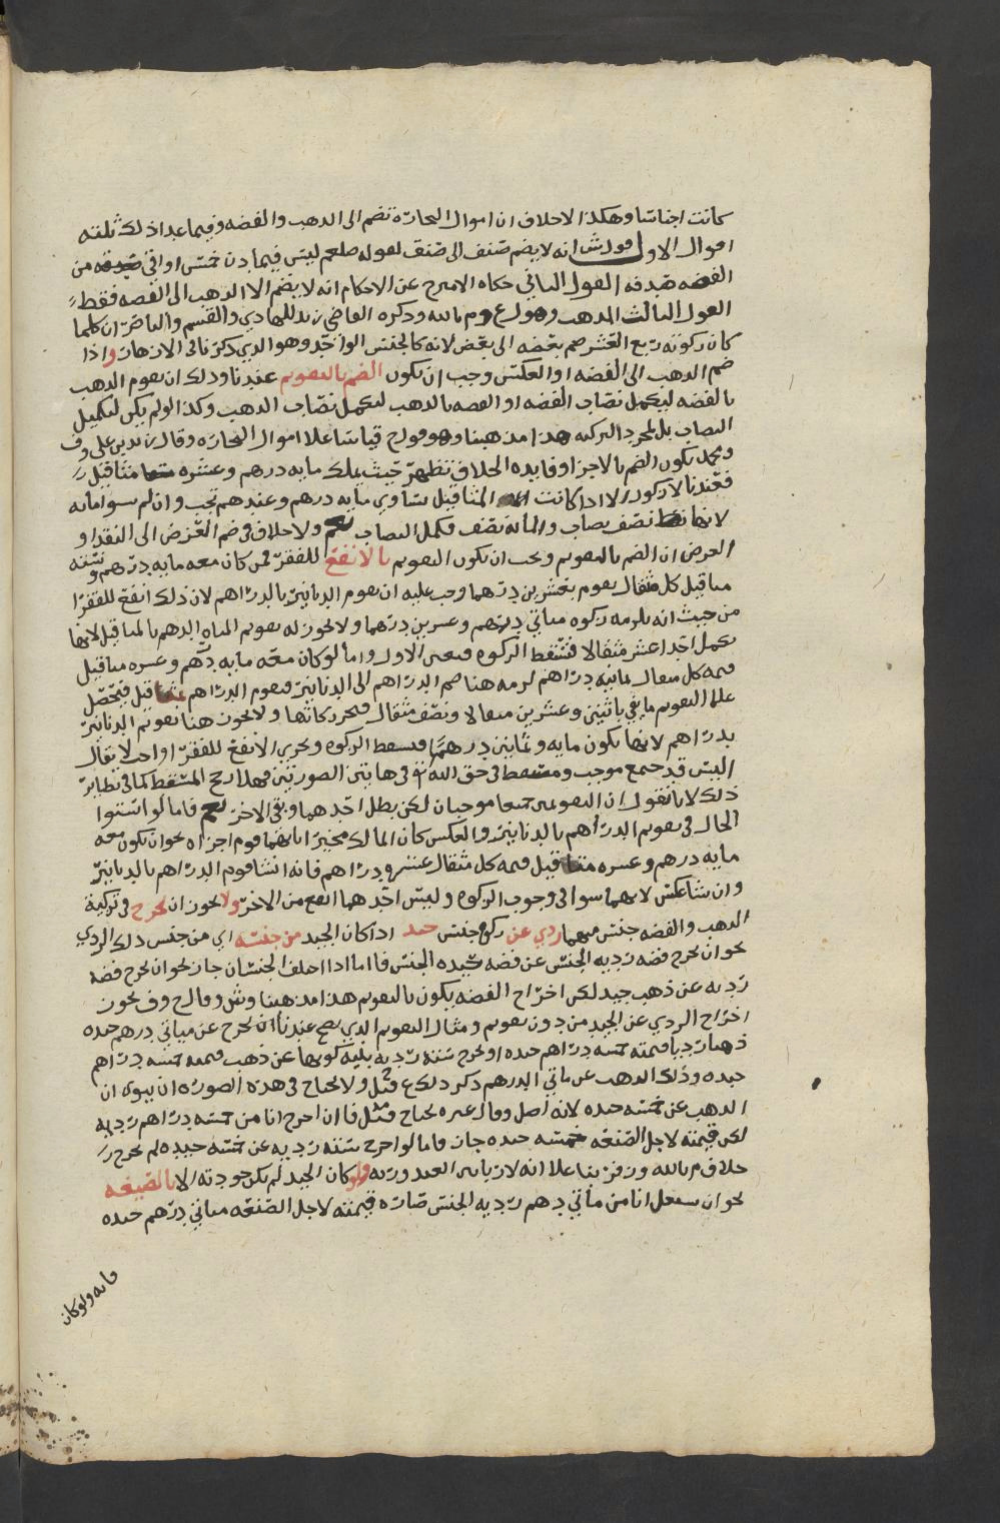 كانت اجناسا وهكذا لاخلاف ان اموال التجارة تضم الى الذهب والفضه وفيما عدا ذلك ثلثه
اقوال الاول وورش انه لا يضم صنف الى صنف لقوله صلعم ليس فيما دون خمس اواقي صدقه من
الفضه صدقه القول الثاني حكاه الامير ح عن الاحكام انه لا يضم الا الذهب الى الفضه فقط
القول الثالث المذهب وهو ع وم بالله وذكره القاضي زيد للهادي والقسم والناصر ان كلما
كان زكوته ربع العشر ضم بعضه الى بعض لانه كالجنس الواحد وهو الذي ذكرنا في الازهار واذا
ضم الذهب الى الفضه او العكس وجب ان يكون الضم بالتقويم عندنا وذلك ان يقوم الذهب
بالفضه ليكمل نصاب الفضه او الفضه بالذهب ليكمل نصاب الذهب وكذا لو لم يكن لتكميل
النصاب بل لمجرد التزكيه هذا مذهبنا وهو قول ح قياسا على اموال التجاره وقال زيد بن علي وف
ومحمد يكون الضم بالاجزا وفايدة الخلاف تظهر حيث يملك مايه درهم وعشره مثاقيل
فعندنا لا زكوه الا اذا كانت المثاقيل تساوي مايه درهم وعندهم تجب وان لم تسو امايه
لانها نصف نصاب والمائه نصف فكمل النصاب نعم ولا خلاف في ضم العرض الى النقد او
العرض ان الضم بالتقويم ويجب ان يكون التقويم بالانفع للفقرا فمن كان معه مايه درهم وستة
مثاقيل كل مثقال يقوم بعشرين درهما وجب عليه ان يقوم الدنانير بالدراهم لان ذلك انفع للفقرا
من حيث انه يلزمه زكوه مياتي درهم وعشرين درهما ولا يجوز له تقويم المياه الدرهم بالمثاقيل لانها
تكمل احد عشر مثقالا فتسقط الزكوه فتعين الاول واما لو كان معه مايه درهم وعشره مثاقيل
قيمه كل مثقال ثمانيه دراهم لزمه هنا ضم الدراهم الى الدنانير فيقوم الدراهم بمثاقيل فيحصل
على التقويم ما يفي باثنين وعشرين مثقالا ونصف مثقال فيخرج زكاتها ولا يجوز هنا تقويم الدنانير
بدراهم لانها يكون مايه وثمانين درهما فتسقط الزكوه وتحري الانفع للفقرا واجب لا يقال
اليس قد جمع موجب ومسقط في حق الله في هاتين الصورتين فهلا رجح المسقط كما في نظاير
ذلك لانا نقول ان التقويمين جميعا موجبان لكن بطل احدهما وبقي الاخر نعم فاما لو استوا
الحال في تقويم الدراهم بالدنانير والعكس كان المالك مخيرا ايهما قوم اجزاه نحو ان يكون معه
مايه درهم وعشره مثاقيل قيمه كل مثقال عشره دراهم فانه ان شا قوم الدراهم بالدنانير
وان شا عكس لانهما سوا في وجوب الزكوه وليس احدهما انفع من الاخر ولا يجوز ان يخرج في تزكية
الذهب والفضه جنس منهما ردي عن زكوه جنس جيد اذا كان الجيد من جنسه اي من جنس ذلك الردي
نحو ان يخرج فضه رديه الجنس عن فضه جيده الجنس فاما اذا اختلف الجنسان جاز نحو ان يخرج فضه
رديه عن ذهب جيد لكن اخراج الفضه يكون بالتقويم هذا مذهبنا وش وقال ح وف يجوز
اخراج الردي عن الجيد من دون تقويم ومثال التقويم الذي يصح عندنا ان يخرج عن مياتي درهم جيده
ذهبا رديا قيمته خمسه دراهم جيده او يخرج سته رديه بليه كونها عن ذهب قيمته خمسه دراهم
جيده وذلك الذهب عن ماتي الدرهم ذكر ذلك ع قيل ولا يحتاج في هذه الصوره ان ينوي ان
الذهب عن خمسه جيده لانه اصل وقال غيره يحتاج قيل فان اخرج انا من خمسه دراهم رديه
لكن قيمته لاجل الصنعه خمسه جيده جاز فاما لو اخرج سته رديه عن خمسه جيده لم يخرج
خلاف م بالله وزفر بنا على انه لا ربا بين العبد وربه ولو كان الجيد لم يكن جودته الا بالصنعه
نحو ان يستعمل انا من مأتي درهم رديه الجنس صاره قيمته لاجل الصنعه مياتي درهم جيده
فانه ولو كان